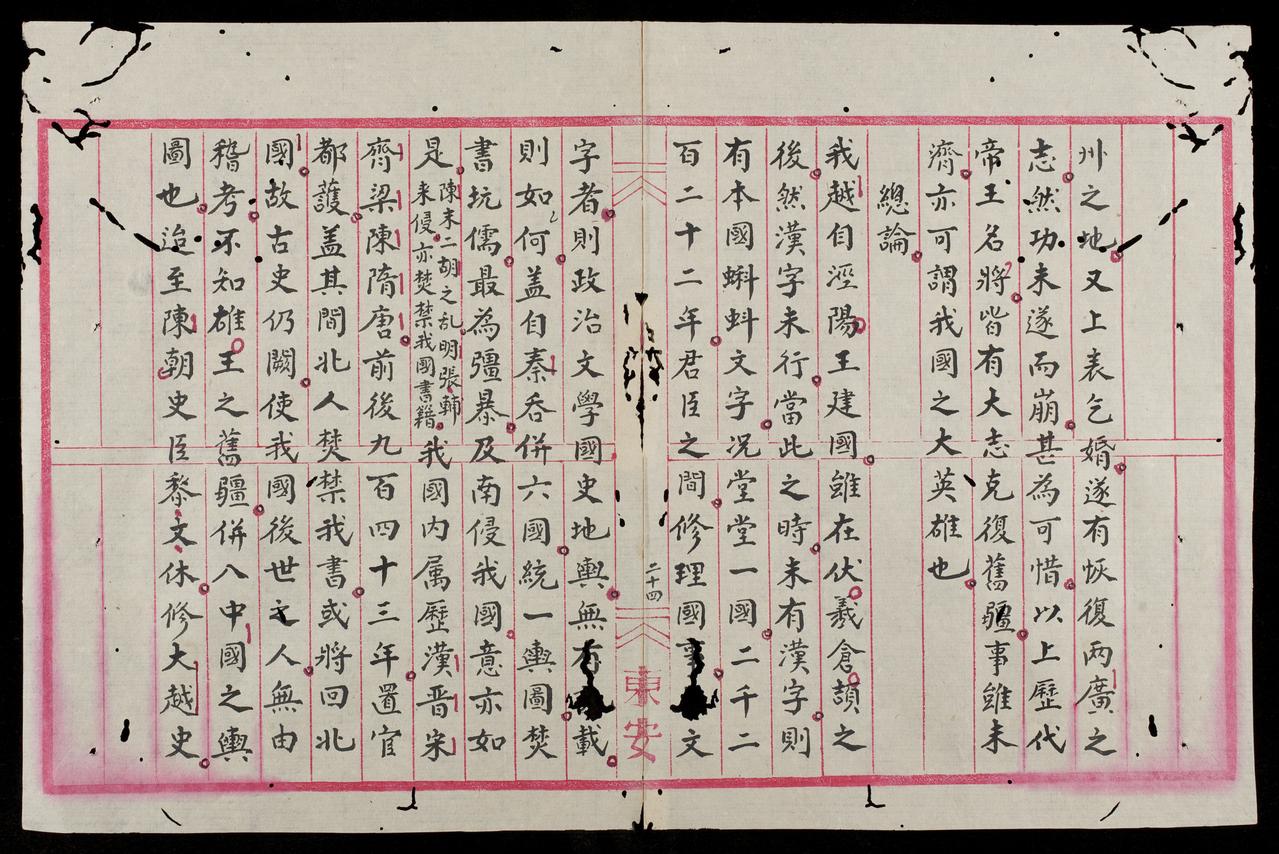 卅之地又上表乞婚遂有恢復兩廣之
志然功未遂而崩甚為可惜以上歷代
帝王名將皆有大志克復舊疆事雖未
濟亦可謂我國之大英雄也
總論
我越自涇陽王建國雖在伏羲倉頡之
後然漢字未行當此之時未有漢字則
有本國蝌蚪文字况堂堂一國二千二
百二十二年君臣之間修理國事文
二十四
東安
字者則政治文學國史地輿無載
則如何盖自秦呑併六國統一輿圖焚
書坑儒最為彊暴及南侵我國意亦如
是陳末二胡之乱明張輔
来侵亦焚禁我國書籍我國内属歷漢晋宋
齊梁陳隋唐前後九百四十三年置官
都護盖其間北人焚禁我書或將回北
國故古史仍闕使我國後世之人無由
稽考不知雄王之舊疆併八中國之輿
圖也迨至陳朝史臣黎文休修大越史